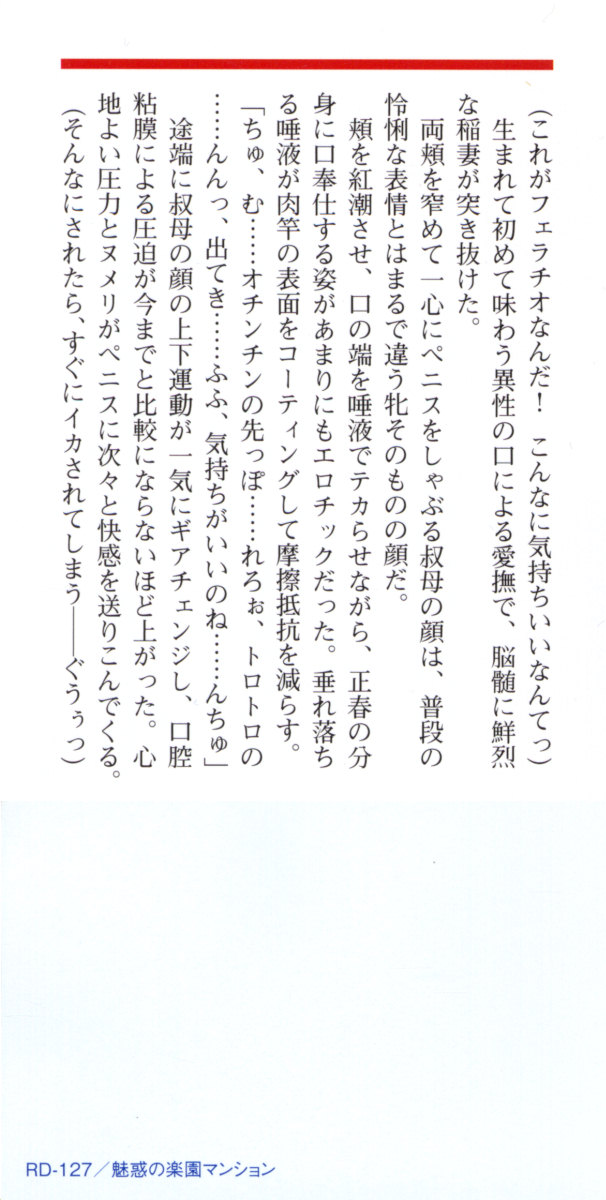 (これがフェラチオなんだ! こんなに気持ちいいなんてっ)
生まれて初めて味わう異性の口による愛撫で、脳髄に鮮烈
な稲妻が突き抜けた。
両頬を窄めて一心にペニスをしゃぶる叔母の顔は、普段の
怜悧な表情とはまるで違う牝そのものの顔だ。
頬を紅潮させ、口の端を唾液でテカらせながら、正春の分
身に口奉仕する姿があまりにもエロチックだった。垂れ落ち
る唾液が肉竿の表面をコーティングして摩擦抵抗を減らす。
「ちゅ、む……オチンチンの先っぽ……れろぉ、トロトロの
……んんっ、出てき……ふふ、気持ちがいいのね……んちゅ」
途端に叔母の顔の上下運動が一気にギアチェンジし、口腔
粘膜による圧迫が今までと比較にならないほど上がった。心
地よい圧力とヌメリがペニスに次々と快感を送りこんでくる。
(そんなにされたら、すぐにイカされてしまう――ぐうぅっ)
RD-127/魅惑の楽園マンション